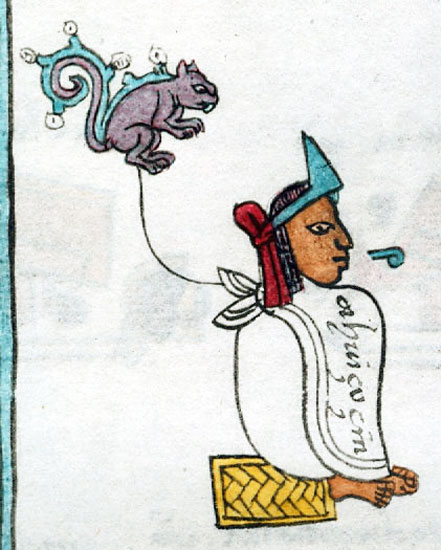 ahuiçoçin